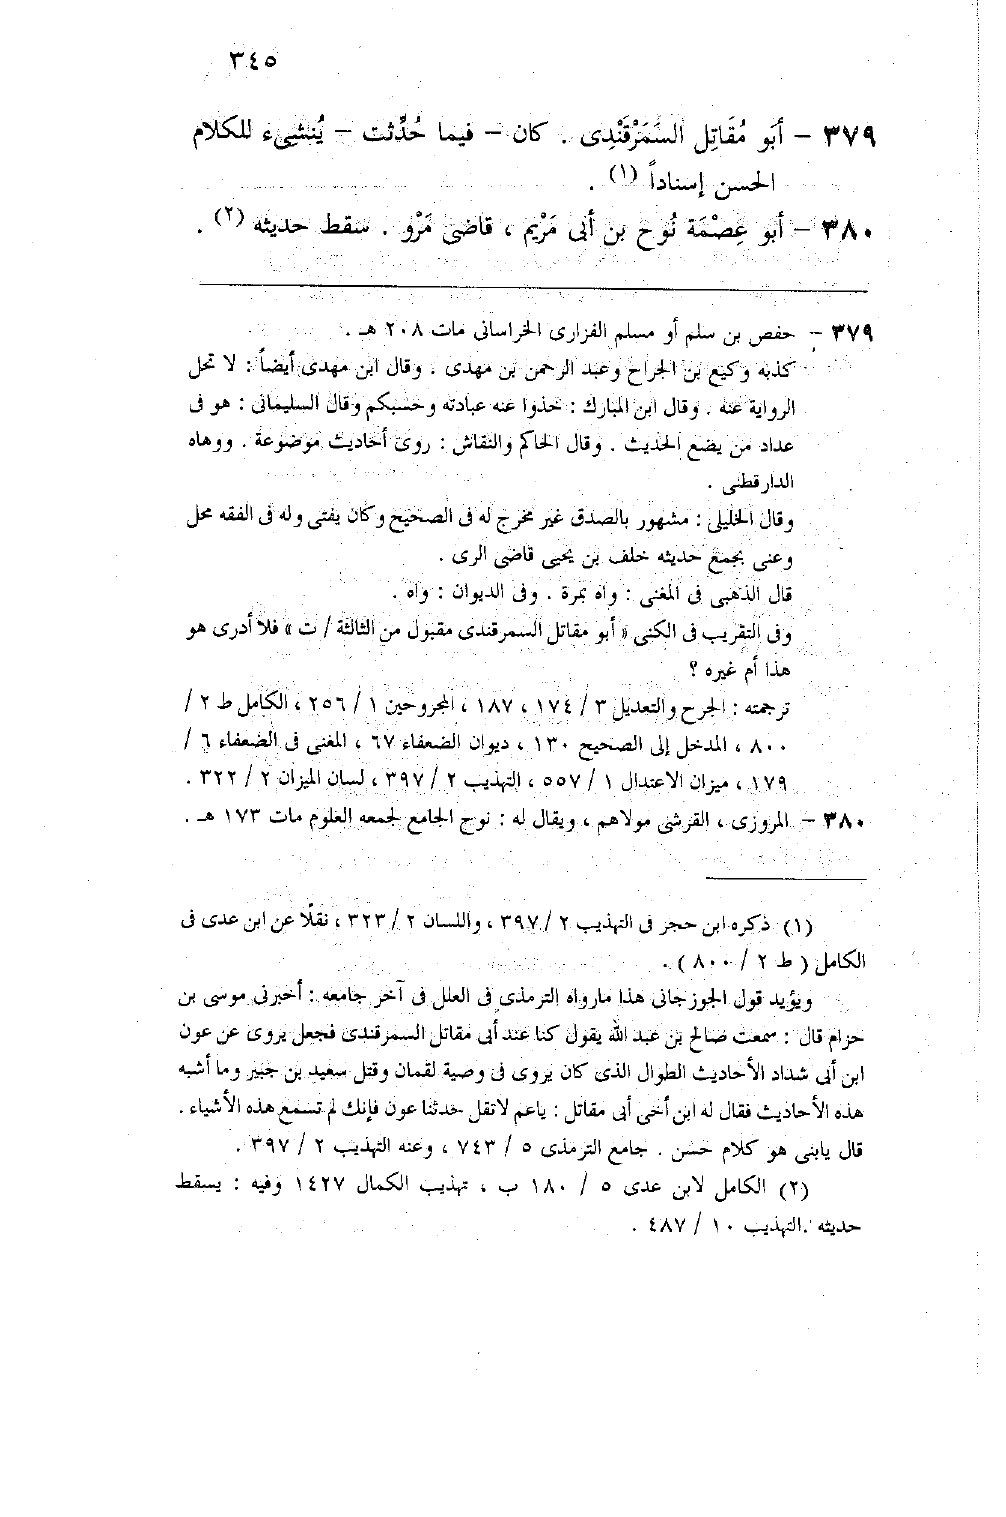 ٣٤٥
٣٧٩ – أَبو مُقَاتِل السَّمَرْقَنْدِى . كان – فيما حُدِّثت – يُنشِىء للكلام
الحسن إسناداً (١) .
٣٨٠ – أبو عِصْمَة نُوح بن أبى مَرْيم ، قاضى مَرْو . سقط حديثه (٢) .
٣٧٩ – حفص بن سلم أو مسلم الفزارى الخراسانى مات ٢٠٨ هـ .
كذبه وكيع بن الجراح وعبد الرحمن بن مهدى . وقال ابن مهدى أيضاً : لا تحل
الرواية عنه . وقال ابن المبارك : خذوا عنه عبادته وحسبكم وقال السليمانى : هو فى
عداد من يضع الحديث . وقال الحاكم والنقاش : روى أحاديث موضوعة . ووهاه
الدارقطنى .
وقال الخليلى : مشهور بالصدق غير مخرج له فى الصحيح وكان يفتى وله فى الفقه محل
وعنى بجمع حديثه خلف بن يحيى قاضى الرى .
قال الذهبى فى المغنى : واه بمرة . وفى الديوان : واه .
وفى التقريب فى الكنى « أبو مقاتل السمرقندى مقبول من الثالثة / ت » فلا أدرى هو
هذا أم غيره ؟
ترجمته : الجرح والتعديل ٣ / ١٧٤ ، ١٨٧ ، المجروحين ١ / ٢٥٦ ، الكامل ط ٢ /
٨٠٠ ، المدخل إلى الصحيح ١٣٠ ، ديوان الضعفاء ٦٧ ، المغنى فى الضعفاء ٦ /
١٧٩ ، ميزان الاعتدال ١ / ٥٥٧ ، التهذيب ٢ / ٣٩٧ ، لسان الميزان ٢ / ٣٢٢ .
٣٨٠ – المروزى ، القرشى مولاهم ، ويقال له : نوح الجامع لجمعه العلوم مات ١٧٣ هـ .
(١) ذكره ابن حجر فى التهذيب ٢ / ٣٩٧ ، واللسان ٢ / ٣٢٣ ، نقلًا عن ابن عدى فى
الكامل ( ط ٢ / ٨٠٠ ) .
ويؤيد قول الجوزجانى هذا مارواه الترمذى فى العلل فى آخر جامعه : أخبرنى موسى بن
حزام قال : سمعت صالح بن عبد الله يقول كنا عند أبى مقاتل السمرقندى فجعل يروى عن عون
ابن أبى شداد الأحاديث الطوال الذى كان يروى فى وصية لقمان وقتل سعيد بن جبير وما أشبه
هذه الأحاديث فقال له ابن أخى أبى مقاتل : ياعم لاتقل حدثنا عون فإنك لم تسمع هذه الأشياء .
قال يابنى هو كلام حسن . جامع الترمذى ٥ / ٧٤٣ ، وعنه التهذيب ٢ / ٣٩٧ .
(٢) الكامل لابن عدى ٥ / ١٨٠ ب ، تهذيب الكمال ١٤٢٧ وفيه : يسقط
حديثه . التهذيب ١٠ / ٤٨٧ .